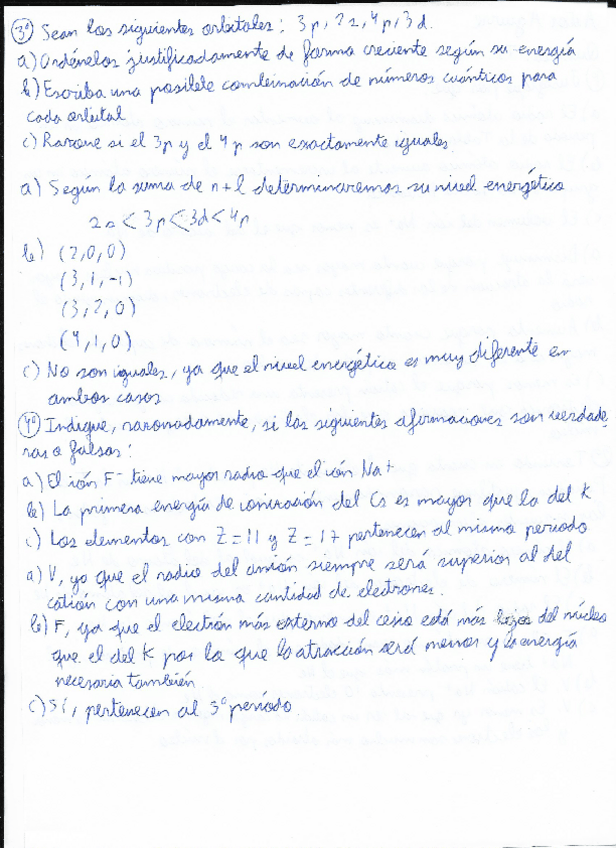 3º) Sean los siguientes orbitales: 3p, 2s, 4p, 3d.
a) Ordénelos justificadamente de forma creciente según su energía
b) Escriba una posible combinación de números cuánticos para
cada orbital
c) Razone si el 3p y el 4p son exactamente iguales.
a) Según la suma de n+l determinaremos su nivel energético
2s < 3p < 3d < 4p
b) (2,0,0)
(3,1,-1)
(3,2,0)
(4,1,0)
c) No son iguales, ya que el nivel energético es muy diferente en
ambos casos
4º) Indique, razonadamente, si las siguientes afirmaciones son verdade
ras o falsas:
a) El ión F⁻ tiene mayor radio que el ión Na+
b) La primera energía de ionización del Cs es mayor que la del K
c) Los elementos con Z=11 y Z=17 pertenecen al mismo periodo
a) V, ya que el radio del anión siempre será superior al del
catión con una misma cantidad de electrones.
b) F, ya que el electrón más externo del cesio está más lejos del núcleo
que el del K por lo que la atracción será menor y la energía
necesaria también
c) Sí, pertenecen al 3º período